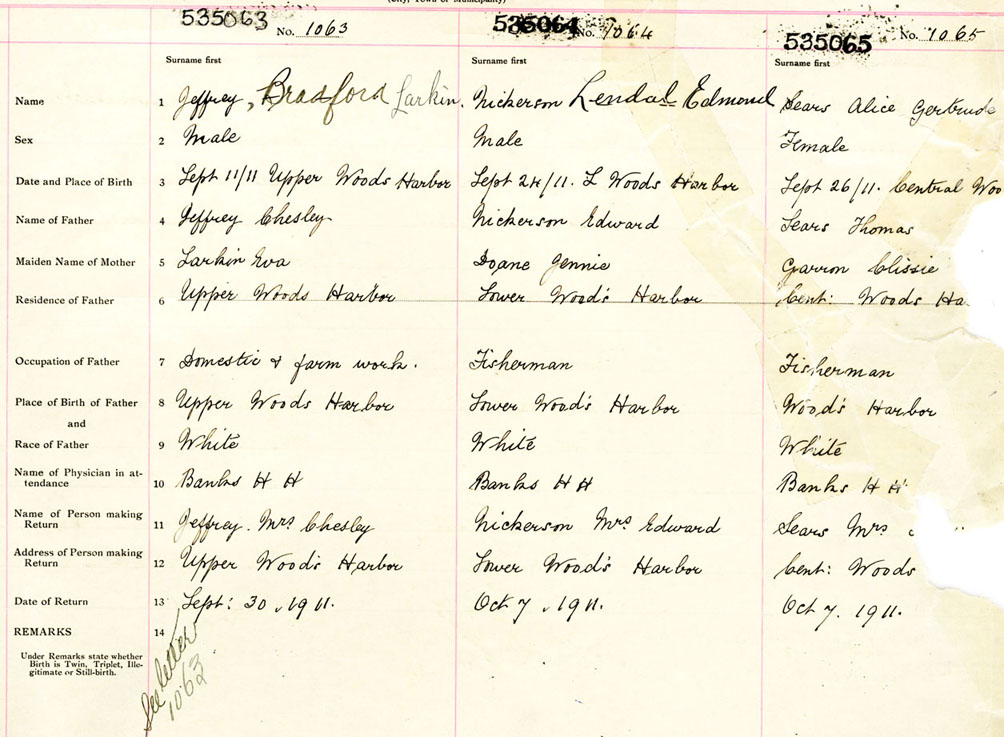 (City, Town or Municipality)
535063 No. 1063 535064 No. 1064 535065 No. 1065
Surname first Surname first Surname first
Name 1 Jeffrey, Bradford Larkin. Nickerson Lendal Edmond Sears Alice Gertrude
Sex 2 Male Male Female
Date and Place of Birth 3 Sept 11/11 Upper Woods Harbor Sept 24/11. L Woods Harbor Sept 26/11. Central Woo
Name of Father 4 Jeffrey Chesley Nickerson Edward Sears Thomas
Maiden Name of Mother 5 Larkin Eva Doane Jennie Garron Clissie
Residence of Father 6 Upper Woods Harbor Lower Wood's Harbor Cent: Woods Ha
Occupation of Father 7 Domestic & farm work. Fisherman Fisherman
Place of Birth of Father 8 Upper Woods Harbor Lower Wood's Harbor Wood's Harbor
and
Race of Father 9 White White White
Name of Physician in at-
tendance 10 Banks H H Banks H H Banks H H
Name of Person making
Return 11 Jeffrey. Mrs Chesley Nickerson Mrs Edward Sears Mrs
Address of Person making
Return 12 Upper Wood's Harbor Lower Wood's Harbor Cent: Woods
Date of Return 13 Sept: 30, 1911. Oct 7, 1911. Oct 7. 1911.
REMARKS 14
Under Remarks state whether
Birth is Twin, Triplet, Ille-
gitimate or Still-birth.
See letter
1063